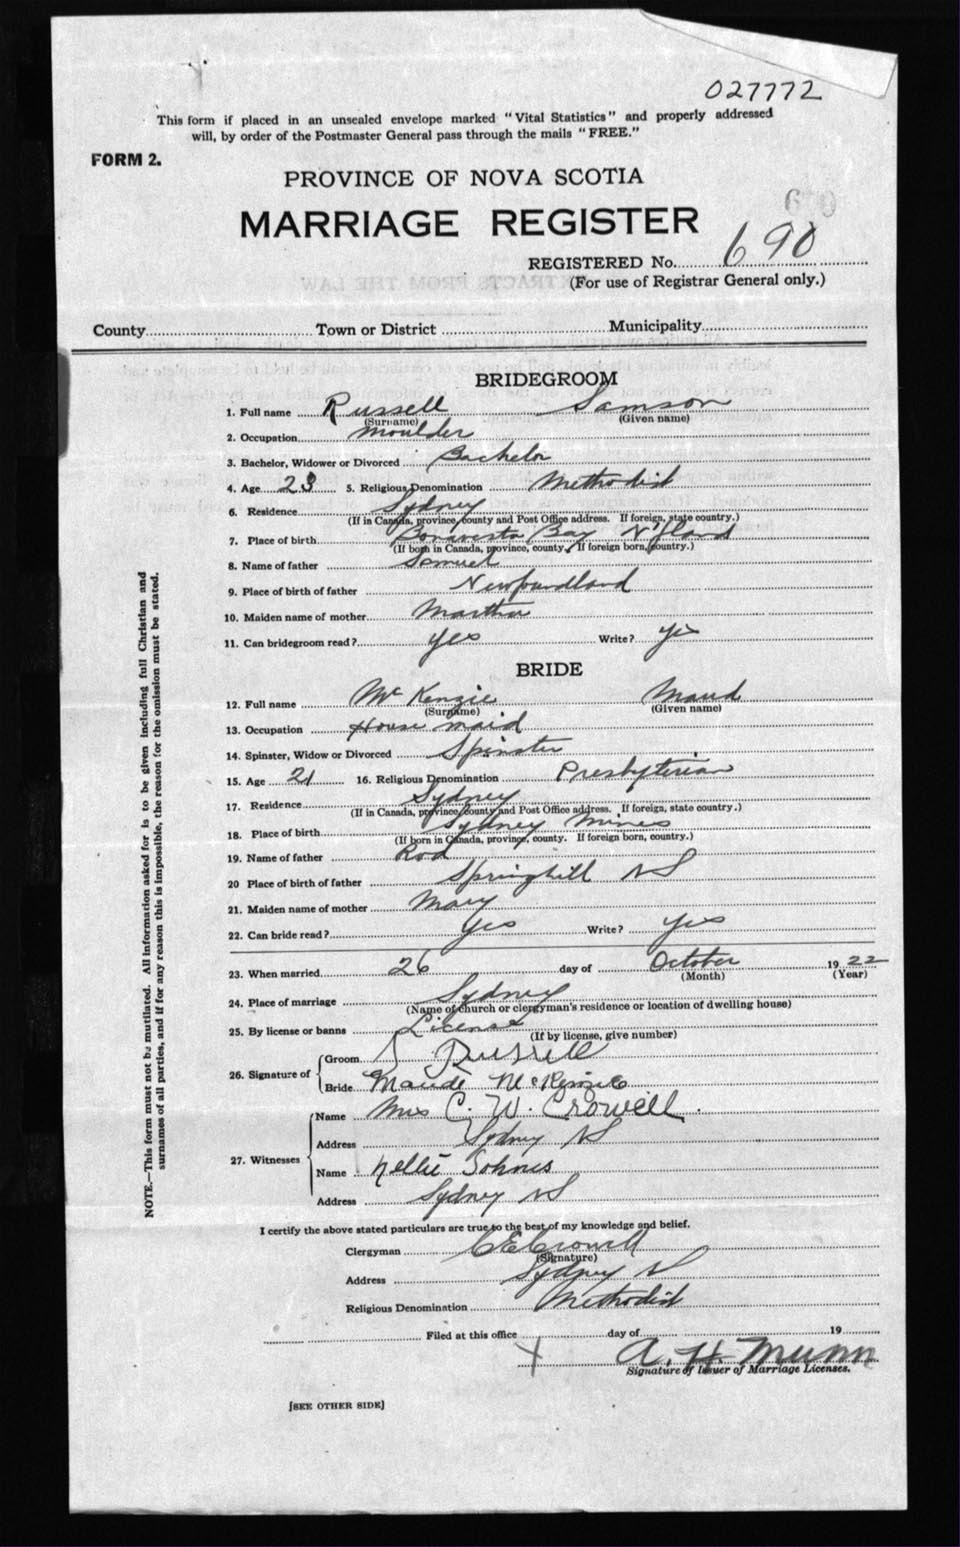 027772
This form if placed in an unsealed envelope marked "Vital Statistics" and properly addressed
will, by order of the Postmaster General pass through the mails "FREE."
FORM 2.
PROVINCE OF NOVA SCOTIA
MARRIAGE REGISTER
REGISTERED No. 690
(For use of Registrar General only.)
County Town or District Municipality
BRIDEGROOM
1. Full name Russell Samson
(Surname) (Given name)
2. Occupation Moulder
3. Bachelor, Widower or Divorced Bachelor
4. Age 23 5. Religious Denomination Methodist
6. Residence Sydney
(If in Canada, province, county and Post Office address. If foreign, state country.)
7. Place of birth Bonavista Bay Nfland
(If born in Canada, province, county. If foreign born, country.)
8. Name of father Samuel
9. Place of birth of father Newfoundland
10. Maiden name of mother Martha
11. Can bridegroom read? yes Write? yes
BRIDE
12. Full name McKenzie Maud
(Surname) (Given name)
13. Occupation House maid
14. Spinster, Widow or Divorced Spinster
15. Age 21 16. Religious Denomination Presbyterian
17. Residence Sydney
(If in Canada, province, county and Post Office address. If foreign, state country.)
18. Place of birth Sydney Mines
(If born in Canada, province, county. If foreign born, country.)
19. Name of father Rod
20 Place of birth of father Springhill NS
21. Maiden name of mother Mary
22. Can bride read? Yes Write? Yes
23. When married 26 day of October 1922
(Month) (Year)
24. Place of marriage Sydney
(Name of church or clergyman's residence or location of dwelling house)
25. By license or banns License
(If by license, give number)
26. Signature of Groom S Russell
Bride Maude McKenzie
27. Witnesses Name Mrs C. W. Crowell
Address Sydney NS
Name Nellie
Address Sydney NS
I certify the above stated particulars are true to the best of my knowledge and belief.
Clergyman C E Crowell
(Signature)
Address Sydney NS
Religious Denomination Methodist
Filed at this office day of 19
A. H. Munn
Signature of Issuer of Marriage Licenses.
[SEE OTHER SIDE]
NOTE.—This form must not be mutilated. All information asked for is to be given including full Christian and
surnames of all parties, and if for any reason this is impossible, the reason for the omission must be stated.